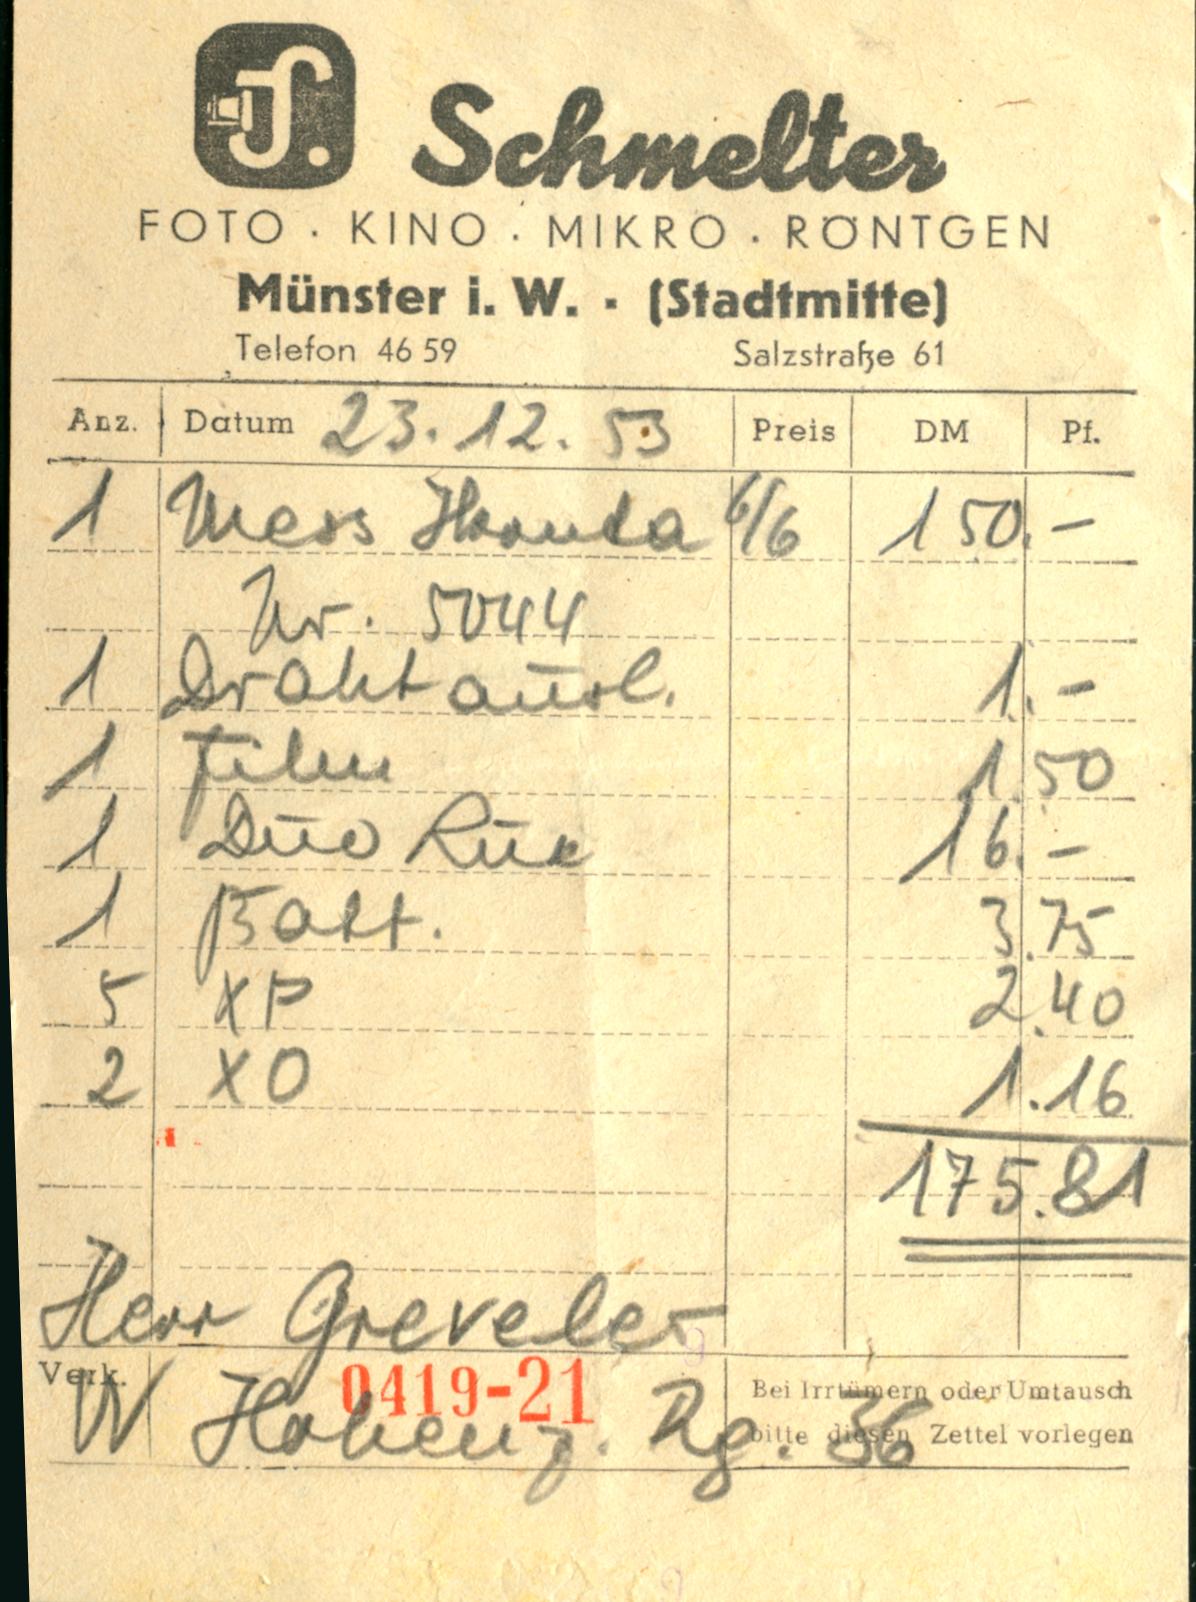 J.S. Schmelter
FOTO · KINO · MIKRO · RÖNTGEN
Münster i. W. · (Stadtmitte)
Telefon 46 59 Salzstraße 61
Anz. Datum 23.12.53 Preis DM Pf.
1 Mess 6/6 150.-
Nr. 5044
1 Drahtausl. 1.-
1 Film 1.50
1 Duo 16.-
1 Batt. 3.75
5 XP 2.40
2 XO 1.16
175.81
Herr Greveler
Verk. 0419-21 Bei Irrtümern oder Umtausch
W Hohenz. Rg. 36 bitte diesen Zettel vorlegen